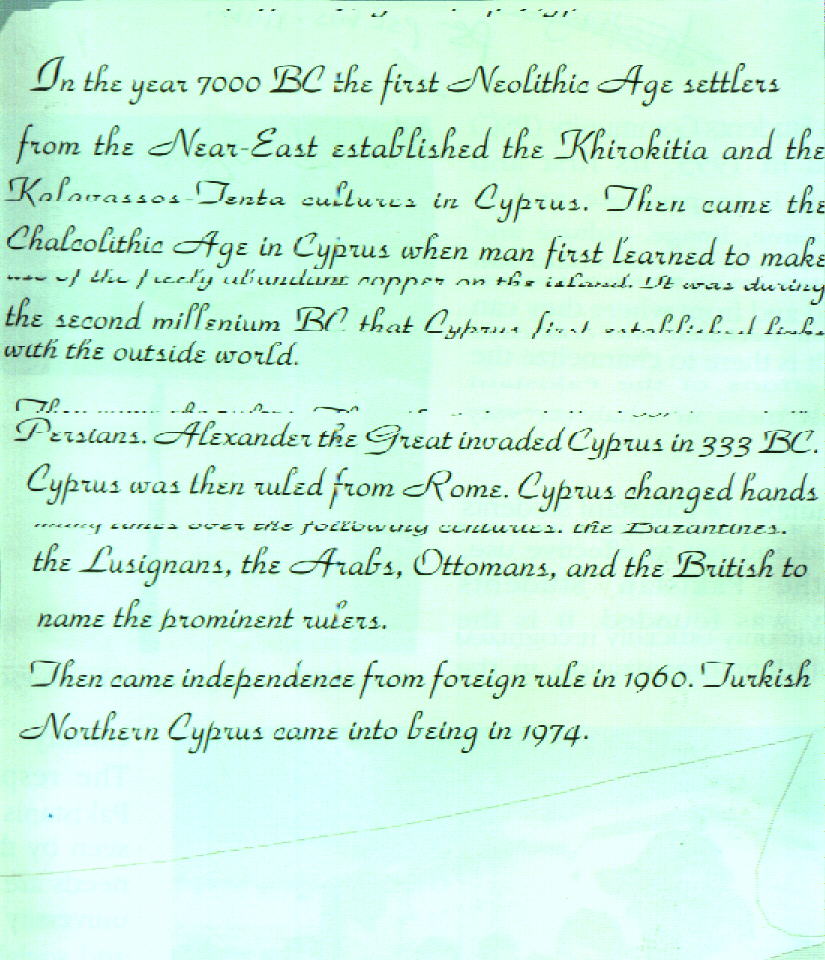 In the year 7000 BC the first Neolithic Age settlers
from the Near-East established the Khirokitia and the
Kalavassos-Tenta cultures in Cyprus. Then came the
Chalcolithic Age in Cyprus when man first learned to make
use of the freely abundant copper on the island. It was during
the second millenium BC that Cyprus first established links
with the outside world.
Persians. Alexander the Great invaded Cyprus in 333 BC.
Cyprus was then ruled from Rome. Cyprus changed hands
many times over the following centuries. the Bazantines.
the Lusignans, the Arabs, Ottomans, and the British to
name the prominent rulers.
Then came independence from foreign rule in 1960. Turkish
Northern Cyprus came into being in 1974.